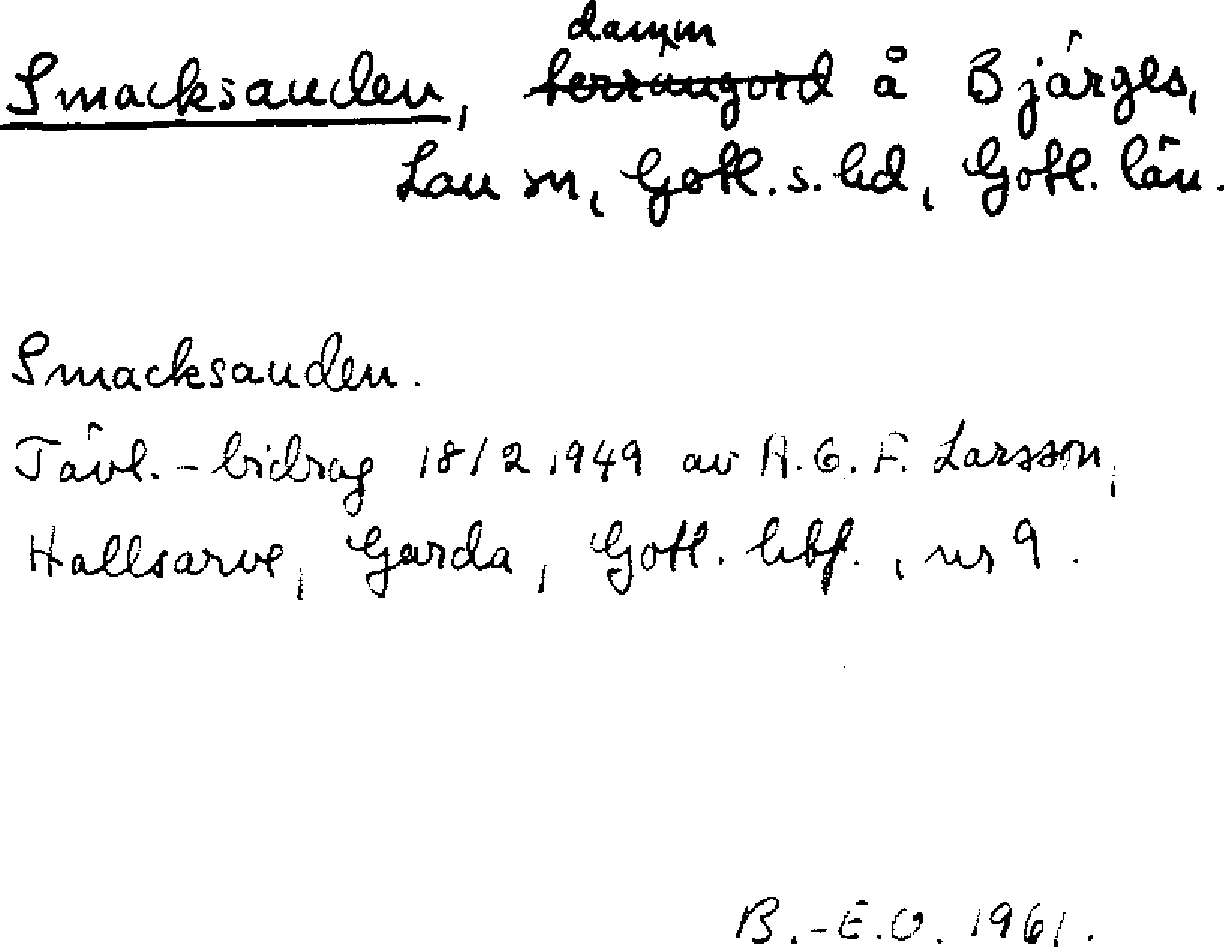 damm
Smacksauden, terrängord å Bjärges,
Lau sn, Gotl. s. hd, Gotl. län.
Smacksauden.
Tävl.-bidrag 18/2 1949 av A. G. F. Larsson,
Hallsarve, Garda, Gotl. hbf., nr 9.
B.-E.O. 1961.